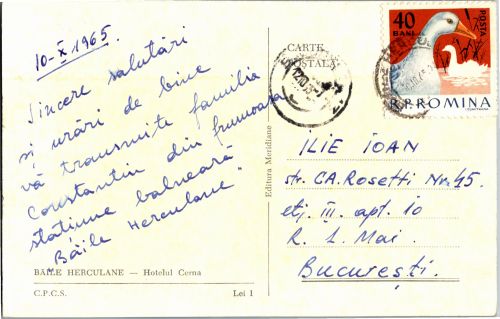 10-X 1965.
Sincere salutări
și urări de bine
vă transmite familia
Constantin din frumoasa
stațiune balneară
"Băile Herculane"
BĂILE HERCULANE — Hotelul Cerna
C.P.C.S.
Lei 1
Editura Meridiane
CARTE
POSTALĂ
40
BANI
POSTA
R.P.ROMINA
ILIE IOAN
str. C.A. Rosetti Nr. 45.
etj. III. apt. 10
R. 1. Mai.
București.